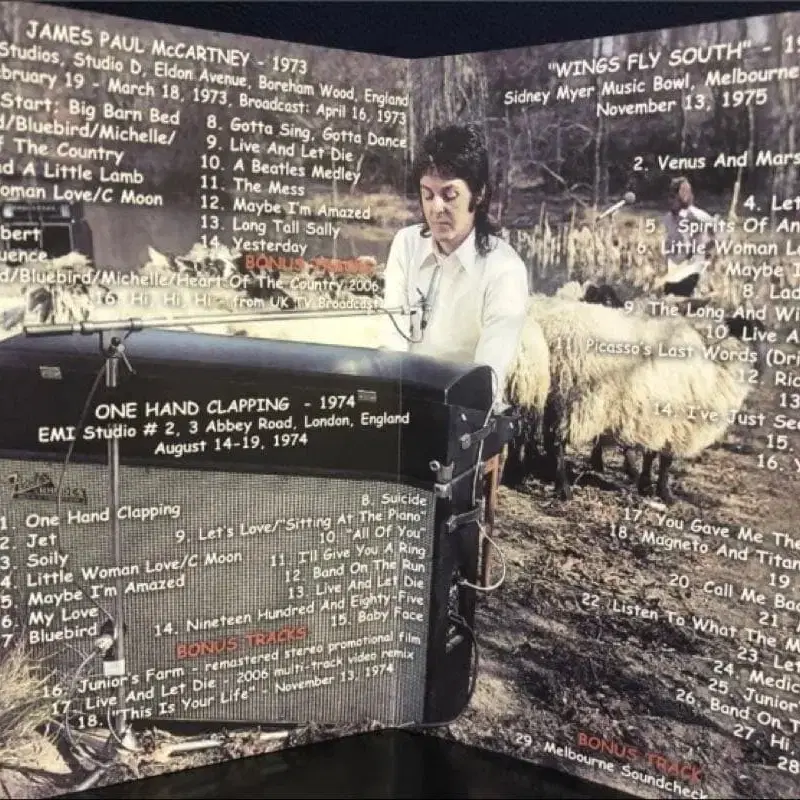 JAMES PAUL McCARTNEY - 1973
Studios, Studio D, Eldon Avenue, Boreham Wood, England
bruary 19 - March 18, 1973, Broadcast: April 16, 1973
Start; Big Barn Bed
d/Bluebird/Michelle/
f The Country
nd A Little Lamb
oman Love/C Moon
bert
uence
8. Gotta Sing, Gotta Dance
9. Live And Let Die
10. A Beatles Medley
11. The Mess
12. Maybe I'm Amazed
13. Long Tall Sally
14. Yesterday
BONUS TRACKS
d/Bluebird/Michelle/Heart Of The Country 2006
16. Hi, Hi, Hi - from UK TV Broadcast
ONE HAND CLAPPING - 1974
EMI Studio # 2, 3 Abbey Road, London, England
August 14-19, 1974
1. One Hand Clapping
2. Jet
3. Soily
4. Little Woman Love/C Moon
5. Maybe I'm Amazed
6. My Love
7. Bluebird
8. Suicide
9. Let's Love/"Sitting At The Piano"
10. "All Of You"
11. I'll Give You A Ring
12. Band On The Run
13. Live And Let Die
14. Nineteen Hundred And Eighty-Five
15. Baby Face
BONUS TRACKS
16. Junior's Farm - remastered stereo promotional film
17. Live And Let Die - 2006 multi-track video remix
18. "This Is Your Life" - November 13, 1974
"WINGS FLY SOUTH" - 19
Sidney Myer Music Bowl, Melbourne
November 13, 1975
2. Venus And Mars
4. Let
5. Spirits Of An
6. Little Woman Lo
7. Maybe I
8. Lad
9. The Long And Wi
10. Live A
11. Picasso's Last Words (Dri
12. Ric
13.
14. I've Just See
15.
16. Y
17. You Gave Me The
18. Magneto And Titan
19
20. Call Me Bac
21.
22. Listen To What The M
23. Let
24. Medic
25. Junior
26. Band On T
27. Hi,
28
BONUS TRACK
29. Melbourne Soundcheck